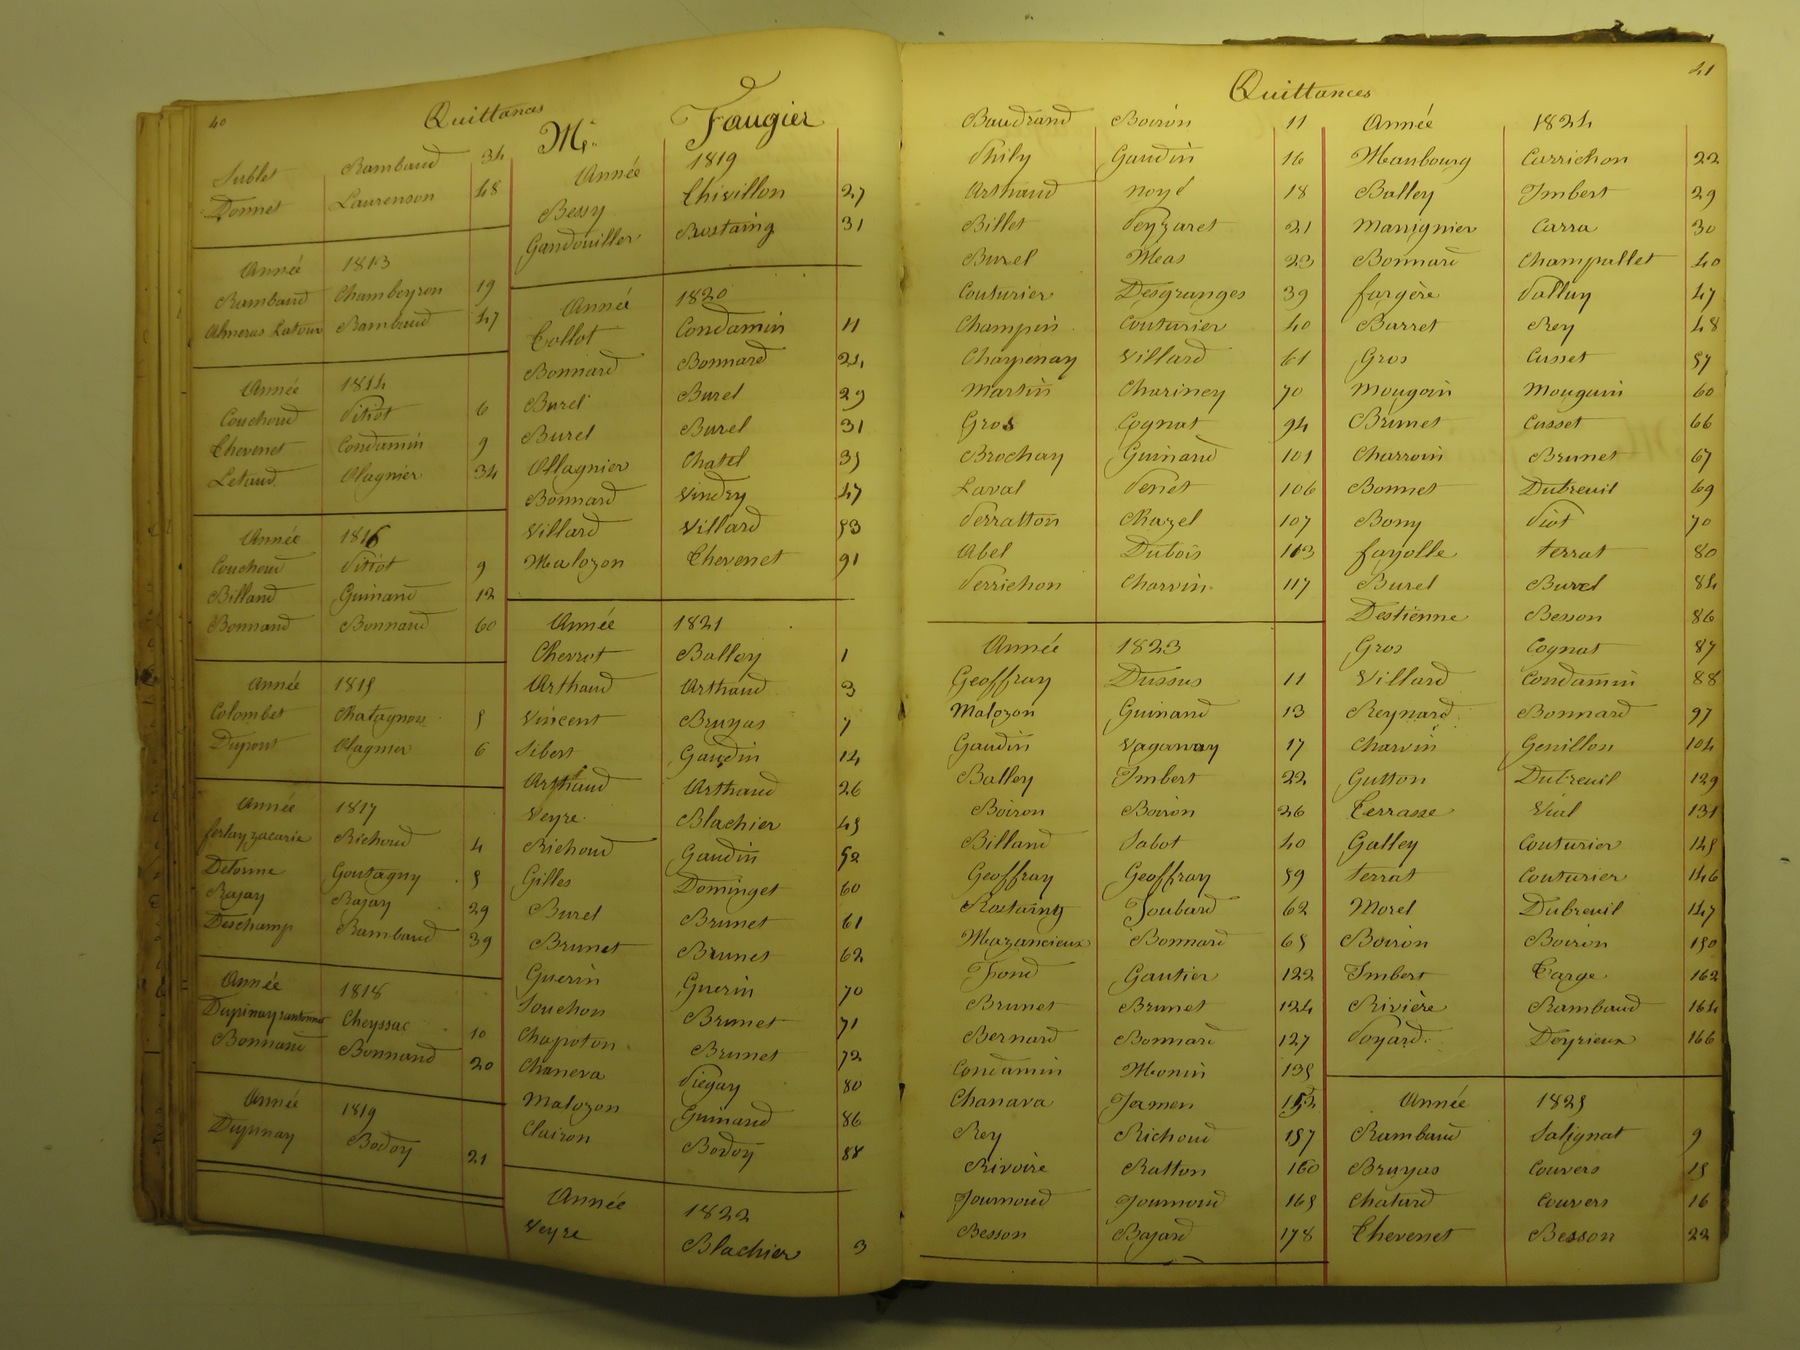 40
Quittances
Sublet Rambaud 34
Donnet Laurenson 48
Année 1813
Rambaud Chambeyron 19
Almeras Latour Rambaud 47
Année 1814
Couchoud Pitiot 6
Chevenet Condamin 9
Letaud Olagnier 34
Année 1816
Couchoud Pitiot 9
Billand Guinand 12
Bonnand Bonnand 60
Année 1815
Colombet Chatagnon 5
Dupont Olagnier 6
Année 1817
ferlay zacarie Richoud 4
Delorme Goutagny 5
Bajay Bajay 29
Deschamp Rambaud 39
Année 1818
Dupinay Cheyssac 10
Bonnand Bonnand 20
Année 1819
Dupinay Bodoy 21
Me Faugier
Année 1819
Bessy Chivillon 27
Gandouiller Rostaing 31
Année 1820
Collot Condamin 11
Bonnard Bonnard 24
Burel Burel 29
Burel Burel 31
Ollagnier Chatel 35
Bonnard Vindry 47
Villard Villard 53
Malozon Chevenet 91
Année 1821
Chevrot Balley 1
Arthaud Arthaud 3
Vincent Bruyas 7
Sibert Gaudin 14
Arthaud Arthaud 26
Veyre Blachier 45
Richoud Gaudin 52
Gilles Dominget 60
Burel Brunet 61
Brunet Brunet 62
Guerin Guerin 70
Souchon Brunet 71
Chapoton Brunet 72
Chaneva Piegay 80
Malozon Guinand 86
Clairon Bodoy 88
Année 1822
Veyre Blachier 3
41
Quittances
Baudrand Boiron 11
Phily Gaudin 16
Arthaud noyé 18
Billet Peyzaret 21
Burel Meas 23
Couturier Desgranges 39
Champin Couturier 40
Charpenay Villard 61
Martin Chariney 70
Gros Cognat 94
Brochay Guinand 101
Laval Penet 106
Perratton Chazel 107
Abel Dubois 113
Perrichon Charvin 117
Année 1823
Geoffray Dussus 11
Malozon Guinand 13
Gaudin Vaganay 17
Balley Imbert 22
Boiron Boiron 26
Billand Sabot 40
Geoffray Geoffray 59
Rostaing Joubard 62
Mazancieux Bonnard 65
Fond Gautier 122
Brunet Brunet 124
Bernard Bonnard 127
Condamin Monin 135
Chanava Jamen
Rey Richoud 157
Rivoire Ratton 160
Journoud Journoud 165
Besson Bajard 178
Année 1824
Maubourg Carrichon 22
Balley Imbert 29
Manignier Carra 30
Bonnard Champallet 40
fargère Palluy 47
Barret Rey 48
Gros Cusset 57
Mougoin Mouguin 60
Brunet Cusset 66
Charroin Brunet 67
Bonnet Dutreuil 69
Bony Piot 70
fayolle terrat 80
Burel Burel 84
Destienne Besson 86
Gros Cognat 87
Villard Condamin 88
Reynard Bonnard 97
Charvin Genillon 104
Gutton Dubreuil 129
Terrasse Vial 131
Galley Couturier 145
terrat Couturier 146
Morel Dubreuil 147
Boiron Boiron 150
Imbert Targe 162
Rivière Rambaud 164
Poyard Deyrieux 166
Année 1825
Rambaud Salignat 9
Bruyas Couvers 15
Chatard Couvers 16
Chevenet Besson 22